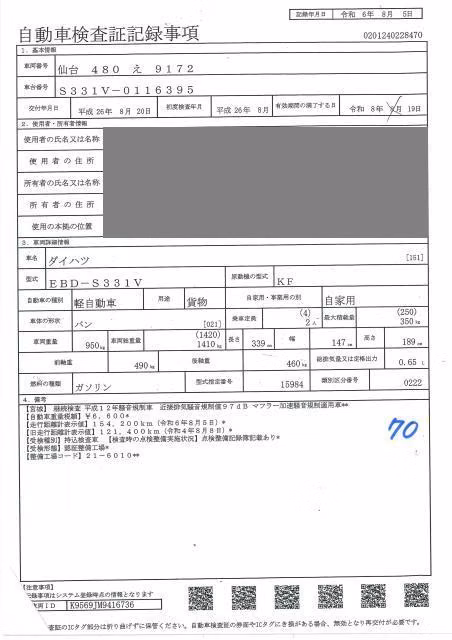 記録年月日 令和 6年 8月 5日
自動車検査証記録事項
0201240228470
1. 基本情報
車両番号 仙台 480 え 9172
車台番号 S331V-0116395
交付年月日 平成 26年 8月 20日 初度検査年月 平成 26年 8月 有効期間の満了する日 令和 8年 8月 19日
2. 使用者・所有者情報
使用者の氏名又は名称
使用者の住所
所有者の氏名又は名称
所有者の住所
使用の本拠の位置
3. 車両詳細情報
車名 ダイハツ [151]
型式 EBD-S331V 原動機の型式 KF
自動車の種別 軽自動車 用途 貨物 自家用・事業用の別 自家用
車体の形状 バン [021] 乗車定員 (4) 2人 最大積載量 (250) 350kg
車両重量 950kg 車両総重量 (1420) 1410kg 長さ 339cm 幅 147cm 高さ 189cm
前軸重 490kg 後軸重 460kg 総排気量又は定格出力 0.65L
燃料の種類 ガソリン 型式指定番号 15984 類別区分番号 0222
4. 備考
【宮城】 継続検査 平成12年騒音規制車 近接排気騒音規制値97dB マフラー加速騒音規制適用車**
【自動車重量税額】¥6,600*
【走行距離計表示値】154,200km(令和6年8月5日)*
【旧走行距離計表示値】121,400km(令和4年8月8日)*
【受検種別】持込検査車 【検査時の点検整備実施状況】点検整備記録簿記載あり*
【受検形態】認証整備工場*
【整備工場コード】21-6010**
70
【注意事項】
記録事項はシステム登録時点の情報となります
車両ID K9569JM9416736
査証のICタグ部分は折り曲げずに保管ください。自動車検査証の券面やICタグにき損がある場合、無効となり再交付が必要です。